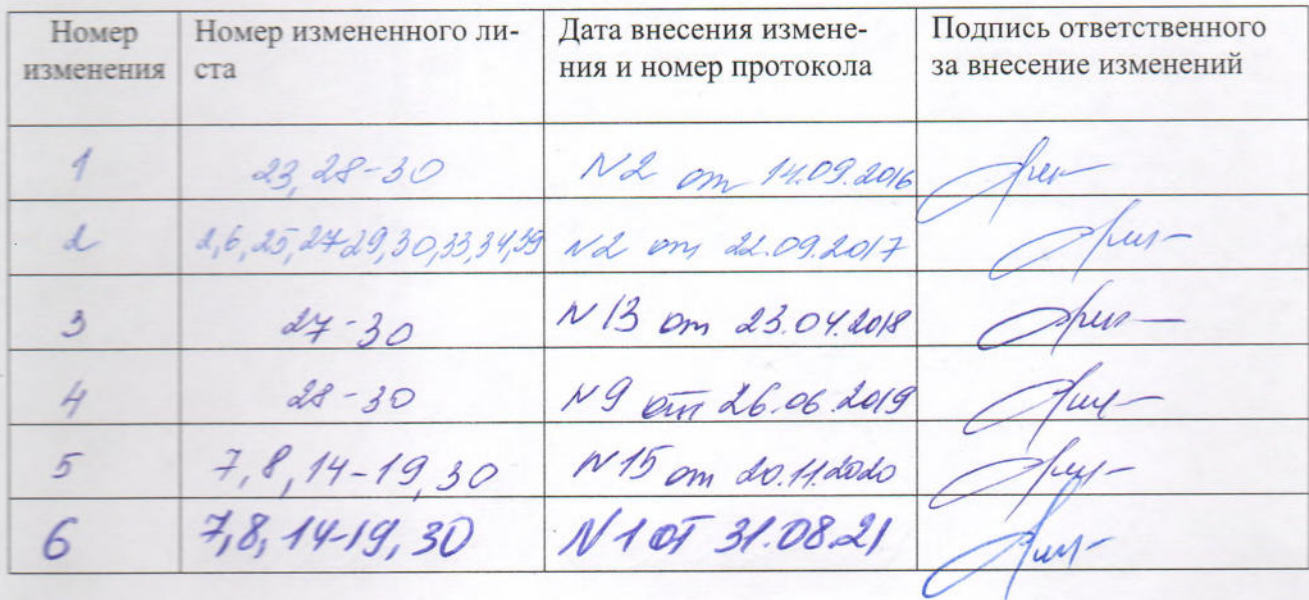 Номер изменения | Номер измененного ли-ста | Дата внесения измене-ния и номер протокола | Подпись ответственного за внесение изменений
1 | 23, 28-30 | N2 от 14.09.2016
2 | 2,6,25,27-29,30,33,34,39 | N2 от 22.09.2017
3 | 27-30 | N13 от 23.04.2018
4 | 28-30 | N9 от 26.06.2019
5 | 7,8,14-19,30 | N15 от 20.11.2020
6 | 7,8,14-19,30 | N1 от 31.08.21